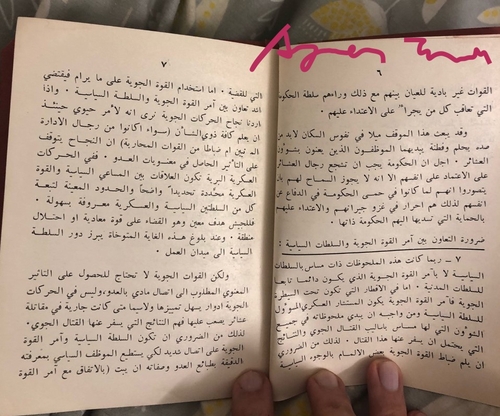 ٦
القوات غير بادية للعيان بينهم مع ذلك وراءهم سلطة الحكومة
التي تعاقب كل من يجرأ على الاعتداء عليهم .
وقد يبعث هذا الموقف ميلا في نفوس السكان لابد من
صده بحلم وفطنة يبديهما الموظفون الذين يعنون بشؤون
العشائر . اجل ان الحكومة يجب ان تشجع رجال العشائر
على الاعتماد على انفسهم الا انه لا يجوز السماح لهم بان
يتصوروا انهم لما كانوا في حمى الحكومة في الدفاع عن
انفسهم لذلك هم احرار في غزو جيرانهم والاعتداء عليهم
بالحماية التي تسديها اليهم الحكومة ذاتها .
ضرورة التعاون بين آمر القوة الجوية والسلطات السياسية :
٧ – ربما كانت هذه الملحوظات ذات مساس بالسلطات
السياسية لا بآمر القوة الجوية الذي يكون دائما تابعا
للسلطات المدنية . اما في الاقطار التي تكون تحت السيطرة
الجوية فآمر القوة الجوية يكون المستشار العسكري المسؤول
للسلطة السياسية ومن واجبه ان يبدي ملحوظاته في جميع
الشؤون التي لها مساس باساليب القتال الجوي والنتائج
التي يحتمل ان يسفر عنها هذا القتال . لذلك من الضروري
ان يلم ضباط القوة الجوية بعض الالمام بالوجوه السياسية
٧
التي للقضية . اما استخدام القوة الجوية على ما يرام فيقتضي
اشد تعاون بين آمر القوة الجوية والسلطة السياسية . واذا
اردنا نجاح الحركات الجوية نرى انه لأمر حيوي حينئذ
ان يعلم كافة ذوي الشأن ( سواء اكانوا من رجال الادارة
المدنيين ام ضباطا من القوات المحاربة ) ان النجاح يتوقف
على التأثير الحاصل في معنويات العدو . ففي الحركات
العسكرية البرية تكون العلاقات بين المساعي السياسية والقوة
العسكرية محددة تحديدا واضحا والحدود المعينة لتبعة
كل من السلطتين السياسية والعسكرية معروفة بسهولة .
فللجيش هدف معين وهو القضاء على قوة معادية او احتلال
منطقة . وعند بلوغ هذه الغاية المتوخاة يبرز دور السلطة
السياسية الى ميدان العمل .
ولكن القوات الجوية لا تحتاج للحصول على التأثير
المعنوي المطلوب الى اتصال مادي بالعدو، وليس في الحركات
الجوية ادوار يسهل تمييزها ولاسيما متى كانت جارية في مقاتلة
عشائر يصعب عليها فهم النتائج التي يسفر عنها القتال الجوي .
لذلك من الضروري ان تكون السلطة السياسية وآمر القوة
الجوية على اتصال شديد لكي يستطيع الموظف السياسي بمعرفته
الدقيقة بطائع العدو وصفاته ان يبت ( بالاتفاق مع آمر القوة